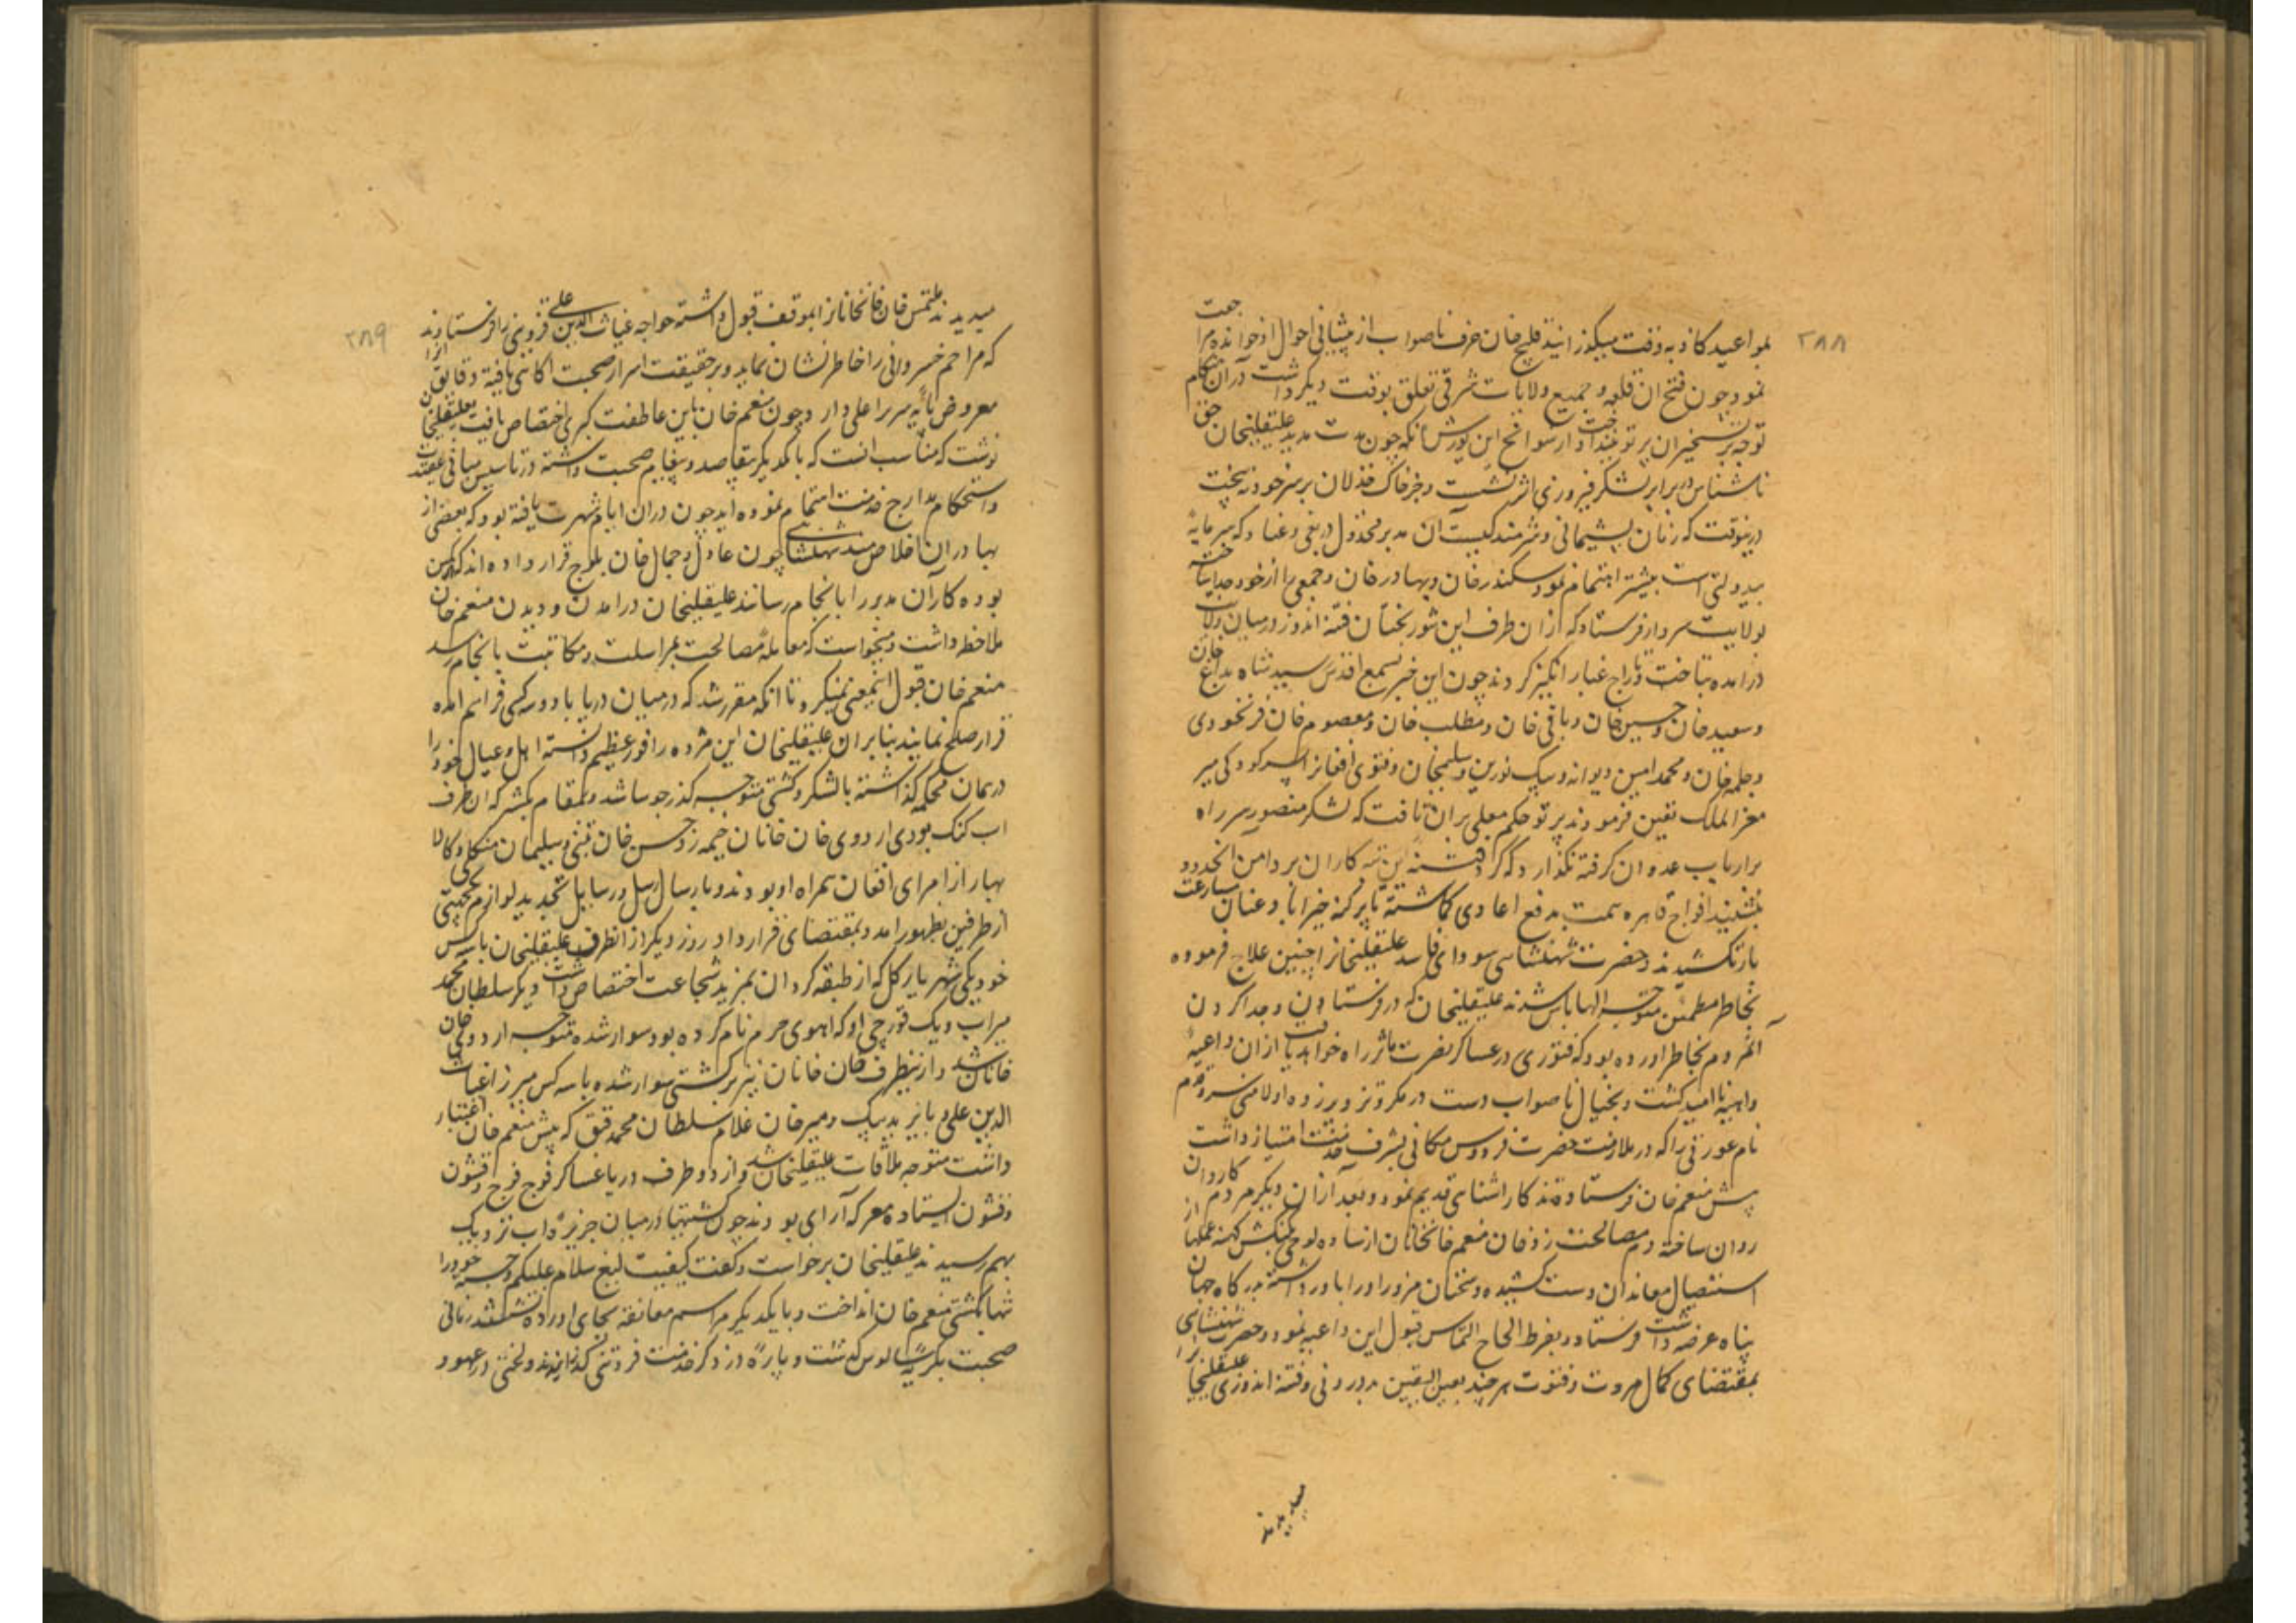 ۲۸۸
بمواعید کاذبه وقت میگذرانید قلیچ خان حرف ناصواب از پیشانی احوال او خوانده مراجعت
نمود و چون فتح ان قلعه و جمیع ولایات شرقی تعلق بوقت دیگر داشت دران هنگام
توجه بتسخیر ان پرتو نینداخت و از سوانح این یورش آنکه چون مدت مدید علیقلیخان حق
ناشناس در برابر لشکر فیروزی اثر نشست و جز خاک خذلان بر سر خود نه بیخت
درینوقت که زمان پشیمانی و شرمندگیست آن مدبر مخذول در بغی و عناد که سرمایه
بیدولتی است بیشتر اهتمام نمود سکندر خان و بهادر خان و جمعی را از خود جدا ساخته
بولایت سروار فرستاد که ازان طرف این شوربختان فتنه اندوز در میان ولایت
درامده بتاخت و تاراج غبار انگیز گردند چون این خبر بسمع اقدس رسید شاه بداغ خان
و سعید خان و حسین خان و باقی خان و مطلب خان و معصوم خان فرنخودی
و چلمه خان و محمد امین دیوانه و بیک نورین و سلیمخان و فتوی افغانرا بسرکردگی میر
معز الملک تعین فرمودند پرتو حکم معلی بران تافت که لشکر منصور سر راه
بر ارباب عدوان گرفته نگذارد که گرد فتنه این تبه کاران بر دامن انحدود
نشیند افواج قاهره همت بدفع اعادی گماشته تا پرگنه خیراباد عنان مسارعت
بازنکشیدند و حضرت شهنشاهی سودای فاسد علیقلیخانرا چنین علاج فرموده
بخاطر مطمئن متوجه الهاباس شدند علیقلیخان که در فرستادن و جدا کردن
آنمردم بخاطر اورده بود که فتوری در عساکر نصرت ماثر راه خواهد یافت ازان داعیه
واهیه ناامید گشت و بخیال ناصواب دست در مکر و تزویر زده اولا منی سروقدم
نام عورتی را که در ملازمت حضرت فردوس مکانی بشرف خدمت امتیاز داشت
پیش منعم خان فرستاده تذکار اشنائی قدیم نمود و بعد ازان دیگر مردم کاردان
روان ساخته دم مصالحت زد خان منعم خانخانان از ساده لوحی کنکش کهنه عملها از
استیصال معاندان دست کشیده و سخنان مزور او را باور داشته بدرگاه جهان
پناه عرضه داشت فرستاد و بفرط الحاح التماس قبول این داعیه نمود و حضرت شهنشاهی
بمقتضای کمال مروت و فتوت هرچند بعین الیقین بددرونی و فتنه اندوزی علیقلیخانرا
میدیدند
۲۸۹
میدیدند ملتمس خان خانانرا بموقف قبول داشته خواجه غیاث الدین علی قزوینی را فرستادند
که مراحم خسروانی را خاطرنشان نماید و بر حقیقت اسرار صحبت اگاهی یافته دقایق انرا
معروض پایه سریر اعلی دارد و چون منعم خان باین عاطفت کبری اختصاص یافت بعلیقلیخان
نوشت که مناسب انست که با یکدیگر بقاصد و پیغام صحبت داشته در تاسیس مبانی عقیدت
و استحکام مدارج خدمت اهتمام نموده اید چون دران ایام شهرت یافته بود که بعضی از
بهادران اخلاص مند شهنشاهی چون عادل و جمال خان بلوچ قرار داده اند که در کمین
بوده کار آن مدبر را بانجام رسانند علیقلیخان در امدن و دیدن منعم خان
ملاحظه داشت و میخواست که معامله مصالحت بمراسلت و مکاتبت بانجام رسد
منعم خان قبول اینمعنی نمیکرد تا انکه مقرر شد که در میان دریا با دو سه کس فراهم امده
قرار صلح نمایند بنابران علیقلیخان این مژده را فوز عظیم دانسته اهل و عیال خود را
در همان محکمه گذاشته با لشکر و کشتی متوجه گذر جوسا شد و بمقام بکسر که ان طرف
اب گنگ بود اردوی خان خانان خیمه زد و حسن خان تبنی و سلیمان منکلی و کالا
بهار از امرای افغان همراه او بودند و بارسال رسل و رسایل تجدید لوازم یکجهتی
از طرفین بظهور امد و بمقتضای قرارداد روز دیگر از انطرف علیقلیخان با سه کس
خود یکی شهریار کل که از طبقه کردان بمزید شجاعت اختصاص داشت دیگر سلطان محمد
میراب و یک قورچی او که اهوی حرم نام کرده بود سوار شده متوجه اردوی خان
خانان شد و ازینطرف خان خانان نیز بر کشتی سوار شده با سه کس میرزا غیاث
الدین علی و بایزید بیک و میرخان غلام سلطان محمد قبق که پیش منعم خان اعتبار
داشت متوجه ملاقات علیقلیخان شد و از دو طرف دریا عساکر فوج فوج و قشون
و قشون ایستاده معرکه آرای بودند چون کشتیها در میان جزیره اب نزدیک
بهم رسیدند علیقلیخان برخواست و گفت کیفیت لیغ سلام علیکم و جسته خود را
تنها بکشتی منعم خان انداخت و با یکدیگر مراسم معانقه بجای اورده نشستند زمانی
صحبت بگریه سالوس گذشت و پاره در ذکر خدمت فروتنی گذرانیدند و لختی در عهود